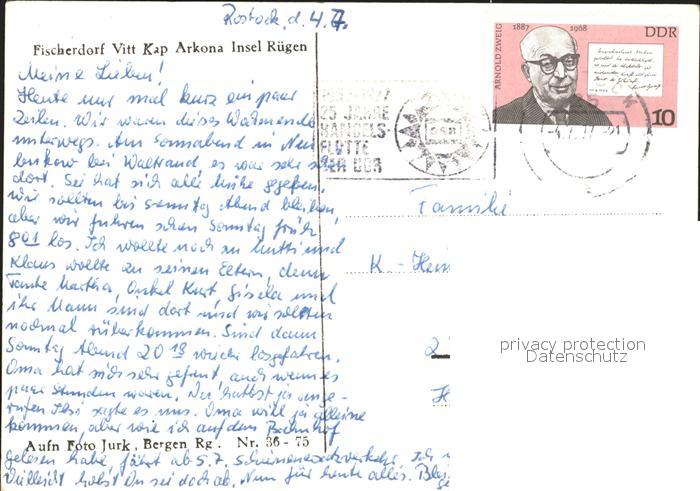 Rostock, d. 4.7.
Fischerdorf Vitt Kap Arkona Insel Rügen
Meine Lieben!
Heute nur mal kurz ein paar
Zeilen. Wir waren dieses Wochenende
unterwegs. Am Sonnabend in Neu
bei Waltraud, es war sehr schön
dort. Sie hat sich alle Mühe gegeben,
wir sollten bis Sonntag Abend bleiben,
aber wir fuhren schon Sonntag früh
8 01 los. Ich wollte noch zu Mutti und
Klaus wollte zu seinen Eltern, denn
Tante Martha, Onkel Kurt, Gisela und
ihr Mann sind dort und wir sollten
nochmal rüberkommen. Sind dann
Sonntag Abend 20 19 wieder losgefahren.
Oma hat sich sehr gefreut, auch wenn es
paar Stunden waren. Du hattest ja ange-
rufen sagte es uns. Oma will ja alleine
kommen, aber wie ich auf dem Bahnhof
Aufn Foto Jurk, Bergen Rg. Nr. 36 - 75
gelesen habe, fährt ab 5.7. Schienenersatzverkehr. Ich
Vielleicht holst Du sie doch ab. Nun für heute alles.
ARNOLD ZWEIG
1887 1968
DDR
10
25 JAHRE
HANDELS-
FLOTTE
DER DDR
DSR
Familie
K. - Hein
2
H
privacy protection
Datenschutz